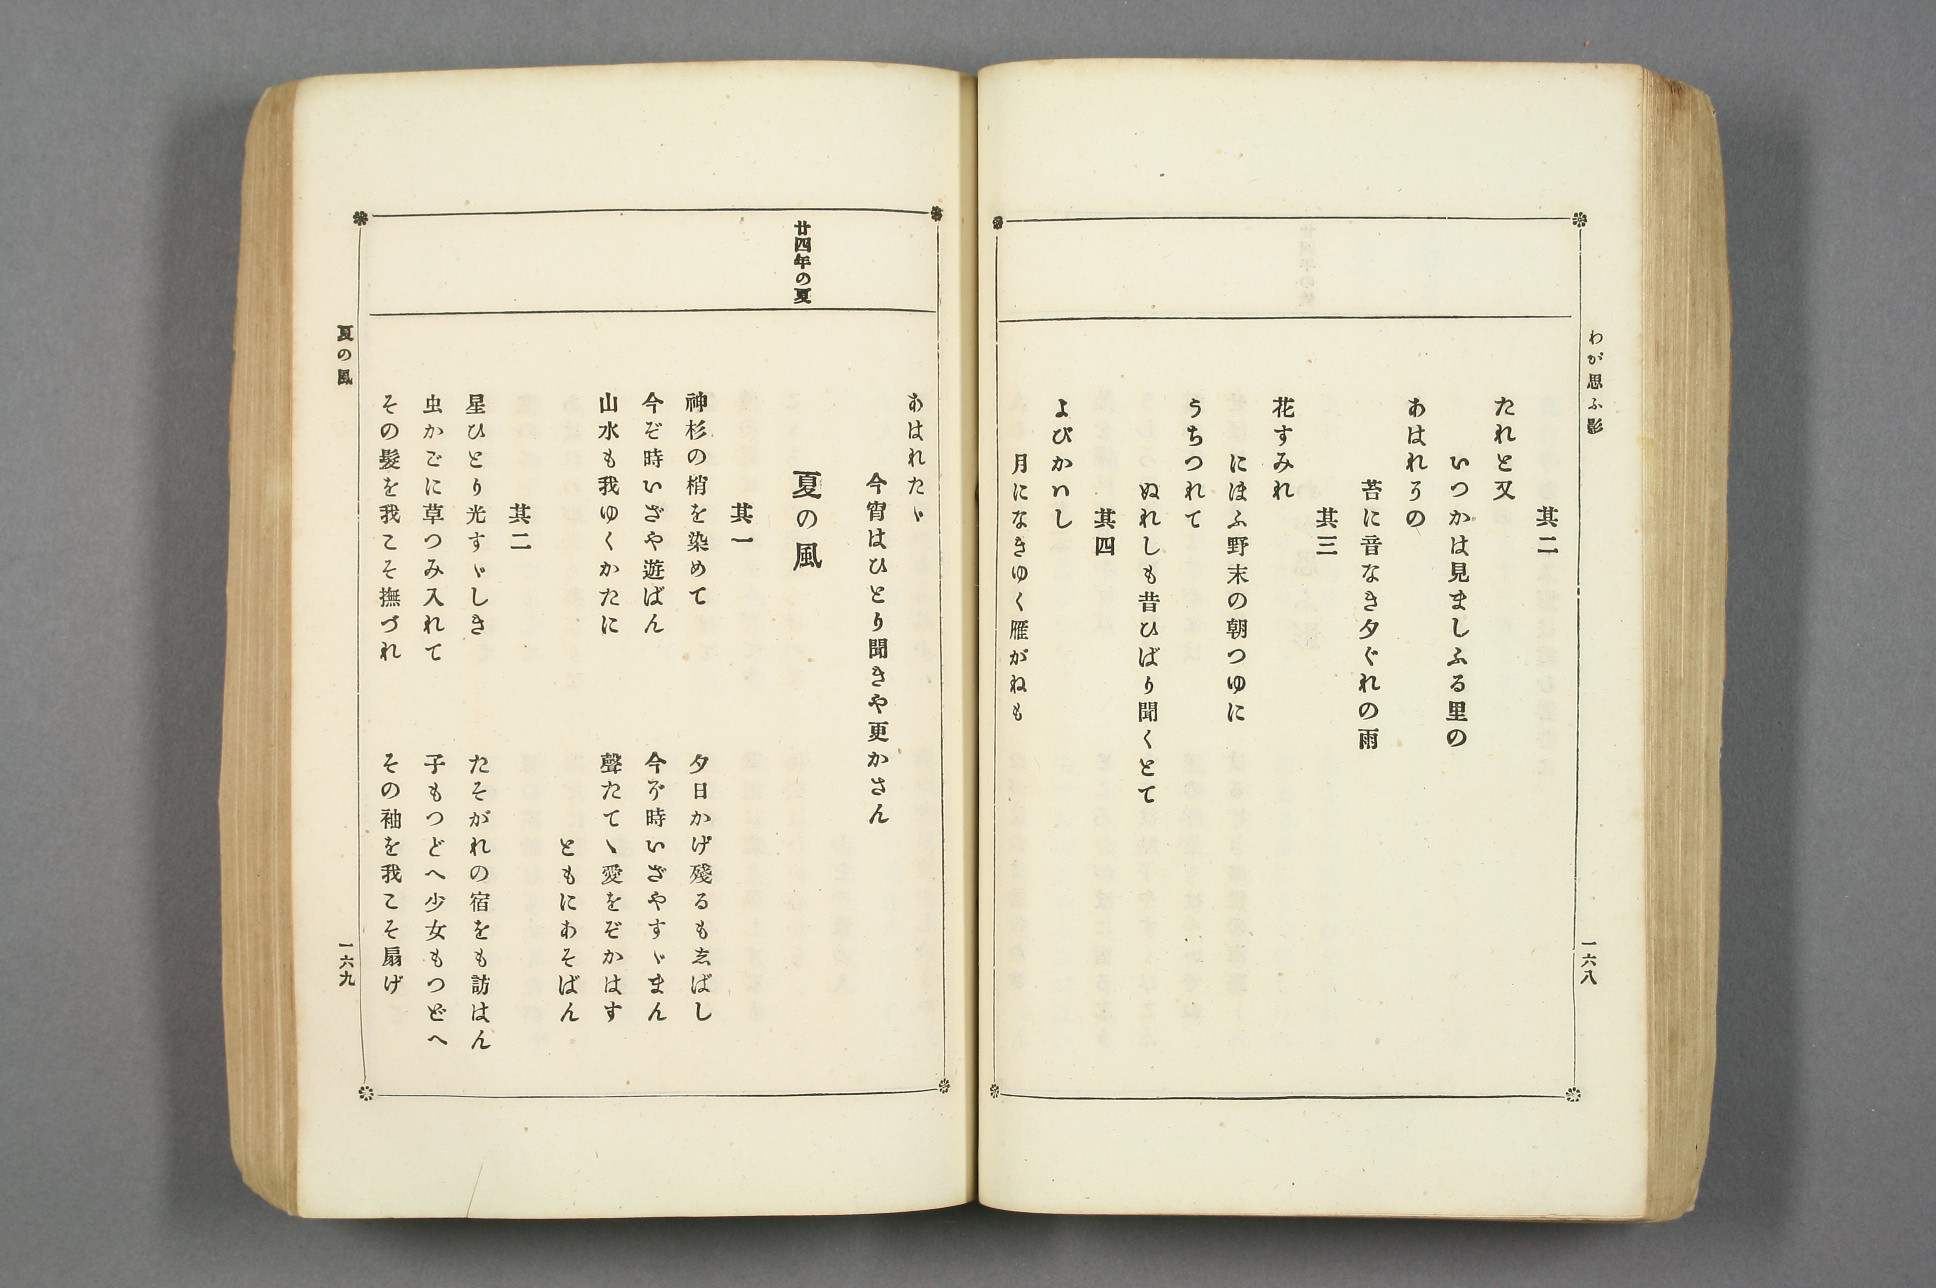 わが思ふ影
其二
たれと又
いつかは見ましふる里の
あはれうの
苔に音なき夕ぐれの雨
其三
花すみれ
にほふ野末の朝つゆに
うちつれて
ぬれしも昔ひばり聞くとて
其四
よびかハし
月になきゆく雁がねも
一六八
廿四年の夏
あはれたゞ
今宵はひとり聞きや更かさん
夏の風
其一
神杉の梢を染めて
夕日かげ殘るも志ばし
今ぞ時いざや遊ばん
今ぞ時いざやすゞまん
山水も我ゆくかたに
聲たてゝ愛をぞかはす
ともにあそばん
其二
星ひとり光すゞしき
たそがれの宿をも訪はん
虫かごに草つみ入れて
子もつどへ少女もつどへ
その髮を我こそ撫づれ
その袖を我こそ扇げ
夏の風
一六九